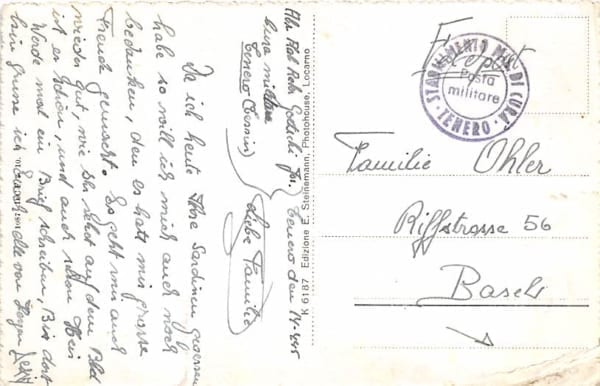 Tenero den
cura militare
Tenero (Tessin)
Liebe Familie
Da ich heute Ihre Sardinen
habe so will ich mich auch noch
bedanken, den es hatt mir grosse
Freude gemacht. Es geht mir auch
wieder gut, wie Sie auf dem Bild
ist es schön, und auch schon
Werde mal ein Brief schreiben, Bis dort
hin grüsse ich alle von Herzen
K 6187 Edizione E. Steinemann, Photohouse, Locarno
Feldpost
STABILIMENTO MIL. DI CURA
Posta
militare
· TENERO ·
Familie Ohler
Riffstrasse 56
Basel